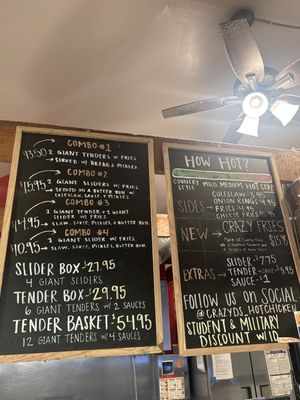 COMBO #1
13.50 2 GIANT TENDERS W/ FRIES
→SERVED W/ BREAD & PICKLES
COMBO #2
15.95 2 GIANT SLIDERS W/ FRIES
→SERVED ON A BUTTER BUN W/
COLESLAW, SAUCE & PICKLES
COMBO #3
14.95 1 GIANT TENDER & 1 GIANT
SLIDER W/ FRIES
→SLAW, PICKLES, BUTTER BUN
COMBO #4
10.95 1 GIANT SLIDER W/ FRIES
→SLAW, PICKLES, BUTTER BUN
SLIDER BOX-$27.95
4 GIANT SLIDERS
TENDER BOX-$29.95
6 GIANT TENDERS W/ 2 SAUCES
TENDER BASKET-$54.95
12 GIANT TENDERS W/ 4 SAUCES
HOW HOT?
COUNTRY STYLE MILD MEDIUM HOT
COLESLAW
SIDES→ ONION RINGS
FRIES
CHEESE FRIES
NEW→ CRAZY FRIES
$15.95
SLIDER-$7.75
EXTRAS→ TENDER
SAUCE-$1
FOLLOW US ON SOCIAL
@CRAZYDS_HOTCHICKEN
STUDENT & MILITARY
DISCOUNT W/ ID